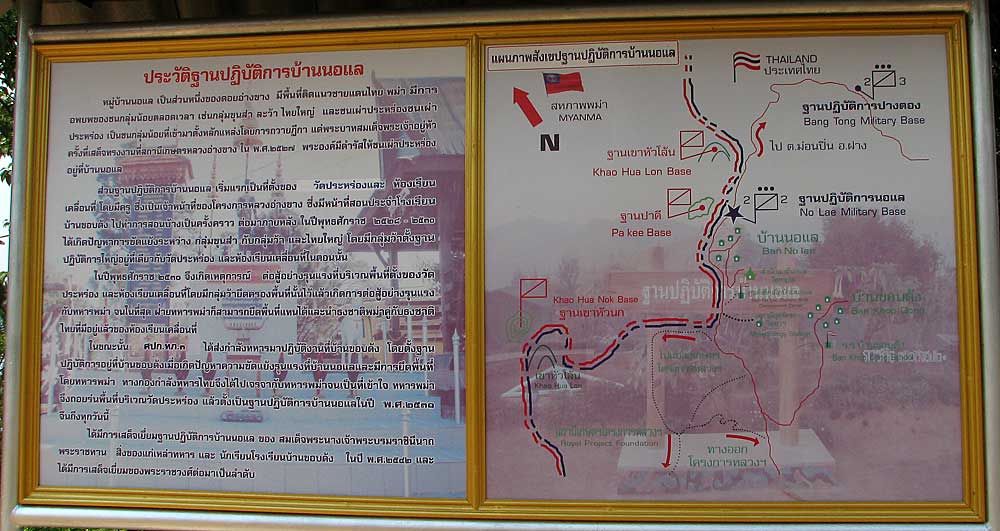 ประวัติฐานปฏิบัติการบ้านนอแล
หมู่บ้านนอแล เป็นส่วนหนึ่งของดอยอ่างขาง มีพื้นที่ติดแนวชายแดนไทย พม่า มีการ
อพยพของชนกลุ่มน้อยตลอดเวลา เช่นกลุ่มขุนส่า ละว้า ไทยใหญ่ และชนเผ่าประหร่องชนเผ่า
ประหร่อง เป็นชนกลุ่มน้อยที่เข้ามาตั้งหลักแหล่งโดยการถวายฎีกา แด่พระบาทสมเด็จพระเจ้าอยู่หัว
ครั้งที่เสด็จทรงงานที่สถานีเกษตรหลวงอ่างขาง ใน พ.ศ.๒๕๒๗ พระองค์มีดำรัสให้ชนเผ่าประหร่อง
อยู่ที่บ้านนอแล
ส่วนฐานปฏิบัติการบ้านนอแล เริ่มแรกเป็นที่ตั้งของ วัดประหร่องและ ห้องเรียน
เคลื่อนที่โดยมีครู ซึ่งเป็นเจ้าหน้าที่ของโครงการหลวงอ่างขาง ซึ่งมีหน้าที่สอนประจำโรงเรียน
บ้านขอบด้ง ไปทำการสอนอย่างเป็นครั้งคราว ต่อมาภายหลัง ในปีพุทธศักราช ๒๕๒๘ - ๒๕๓๐
ได้เกิดปัญหาการขัดแย้งระหว่าง กลุ่มขุนส่า กับกลุ่มว้า และไทยใหญ่ โดยมีกลุ่มว้าตั้งฐาน
ปฏิบัติการใหญ่อยู่ที่เดียวกับวัดประหร่อง และห้องเรียนเคลื่อนที่ในตอนนั้น
ในปีพุทธศักราช ๒๕๓๐ จึงเกิดเหตุการณ์ ต่อสู้อย่างรุนแรงที่บริเวณพื้นที่ตั้งของวัด
ประหร่อง และห้องเรียนเคลื่อนที่โดยมีกลุ่มว้ายึดครองพื้นที่นั้นไว้แล้วเกิดการต่อสู้อย่างรุนแรง
กับทหารพม่า จนในที่สุด ฝ่ายทหารพม่าก็สามารถยึดพื้นที่แทนได้และนำธงชาติพม่าคู่กับธงชาติ
ไทยที่มีอยู่แล้วของห้องเรียนเคลื่อนที่
ในขณะนั้น ศปก.ทภ.๓ ได้ส่งกำลังทหารมาปฏิบัติงานที่บ้านขอบด้ง โดยตั้งฐาน
ปฏิบัติการอยู่ที่บ้านขอบด้งเมื่อเกิดปัญหาความขัดแย้งรุนแรงที่บ้านนอแลและมีการยึดพื้นที่
โดยทหารพม่า ทางกองกำลังทหารไทยจึงได้ไปเจรจากับทหารพม่าจนเป็นที่เข้าใจ ทหารพม่า
จึงถอยร่นพื้นที่บริเวณวัดประหร่อง แล้วตั้งเป็นฐานปฏิบัติการบ้านนอแลในปี พ.ศ.๒๕๓๑
จึนถึงทุกวันนี้
ได้มีการเสด็จเยี่ยมฐานปฏิบัติการบ้านนอแล ของ สมเด็จพระนางเจ้าพระบรมราชินีนาถ
พระราชทาน สิ่งของแก่เหล่าทหาร และ นักเรียนโรงเรียนบ้านขอบด้ง ในปี พ.ศ.๒๕๔๒ และ
ได้มีการเสด็จเยี่ยมของพระราชวงศ์ต่อมาเป็นลำดับ
แผนภาพสังเขปฐานปฏิบัติการบ้านนอแล
สหภาพพม่า
MYANMA
N
THAILAND
ประเทศไทย
2 3
ฐานปฏิบัติการปางตอง
Bang Tong Military Base
ไป ต.ม่อนปิ่น อ.ฝาง
ฐานเขาหัวโล้น
Khao Hua Lon Base
ฐานปาคี
Pa kee Base
2 2
ฐานปฏิบัติการนอแล
No Lae Military Base
บ้านนอแล
Ban No len
Khao Hua Nok Base
ฐานเขาหัวนก
ฐานปฏิบัติการบ้านนอแล
เขาหัวโล้น
Khao Hua Lon
บ้านขอบด้ง
Ban Khob Dong
ร.ร.บ้านขอบด้ง
Ban Khob Dong School
สถานีเกษตรโครงการหลวงฯ
Royel Project Foundation
ทางออก
โครงการหลวงฯ